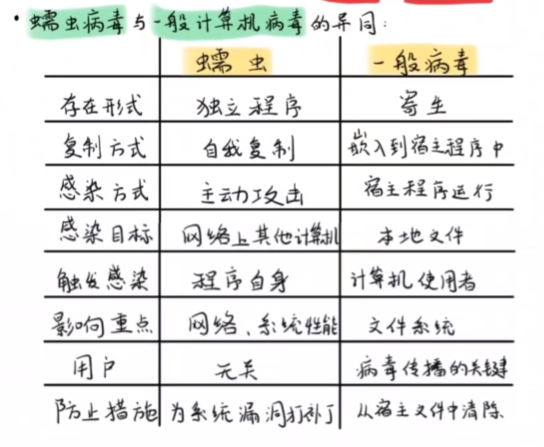 ·蠕虫病毒与一般计算机病毒的异同:
蠕虫 一般病毒
存在形式 独立程序 寄生
复制方式 自我复制 嵌入到宿主程序中
感染方式 主动攻击 宿主程序运行
感染目标 网络上其他计算机 本地文件
触发感染 程序自身 计算机使用者
影响重点 网络、系统性能 文件系统
用户 无关 病毒传播的关键
防止措施 为系统漏洞打补丁 从宿主文件中清除